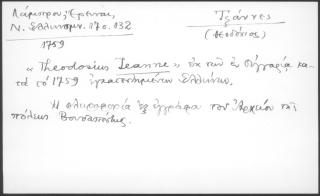 Λάμπρου, Έρευναι,
Ν. Ελληνομν. 17ος. 132.
Τζάννες
(Θεοδόσιος)
1759
« Theodosius Jeanne » εκ των εν Ουγγαρία κα-
τά το 1759 εγκατεστημένων Ελλήνων.
Η πληροφορία εξ εγγράφου του Αρχείου της
πόλεως Βουδαπέστης.